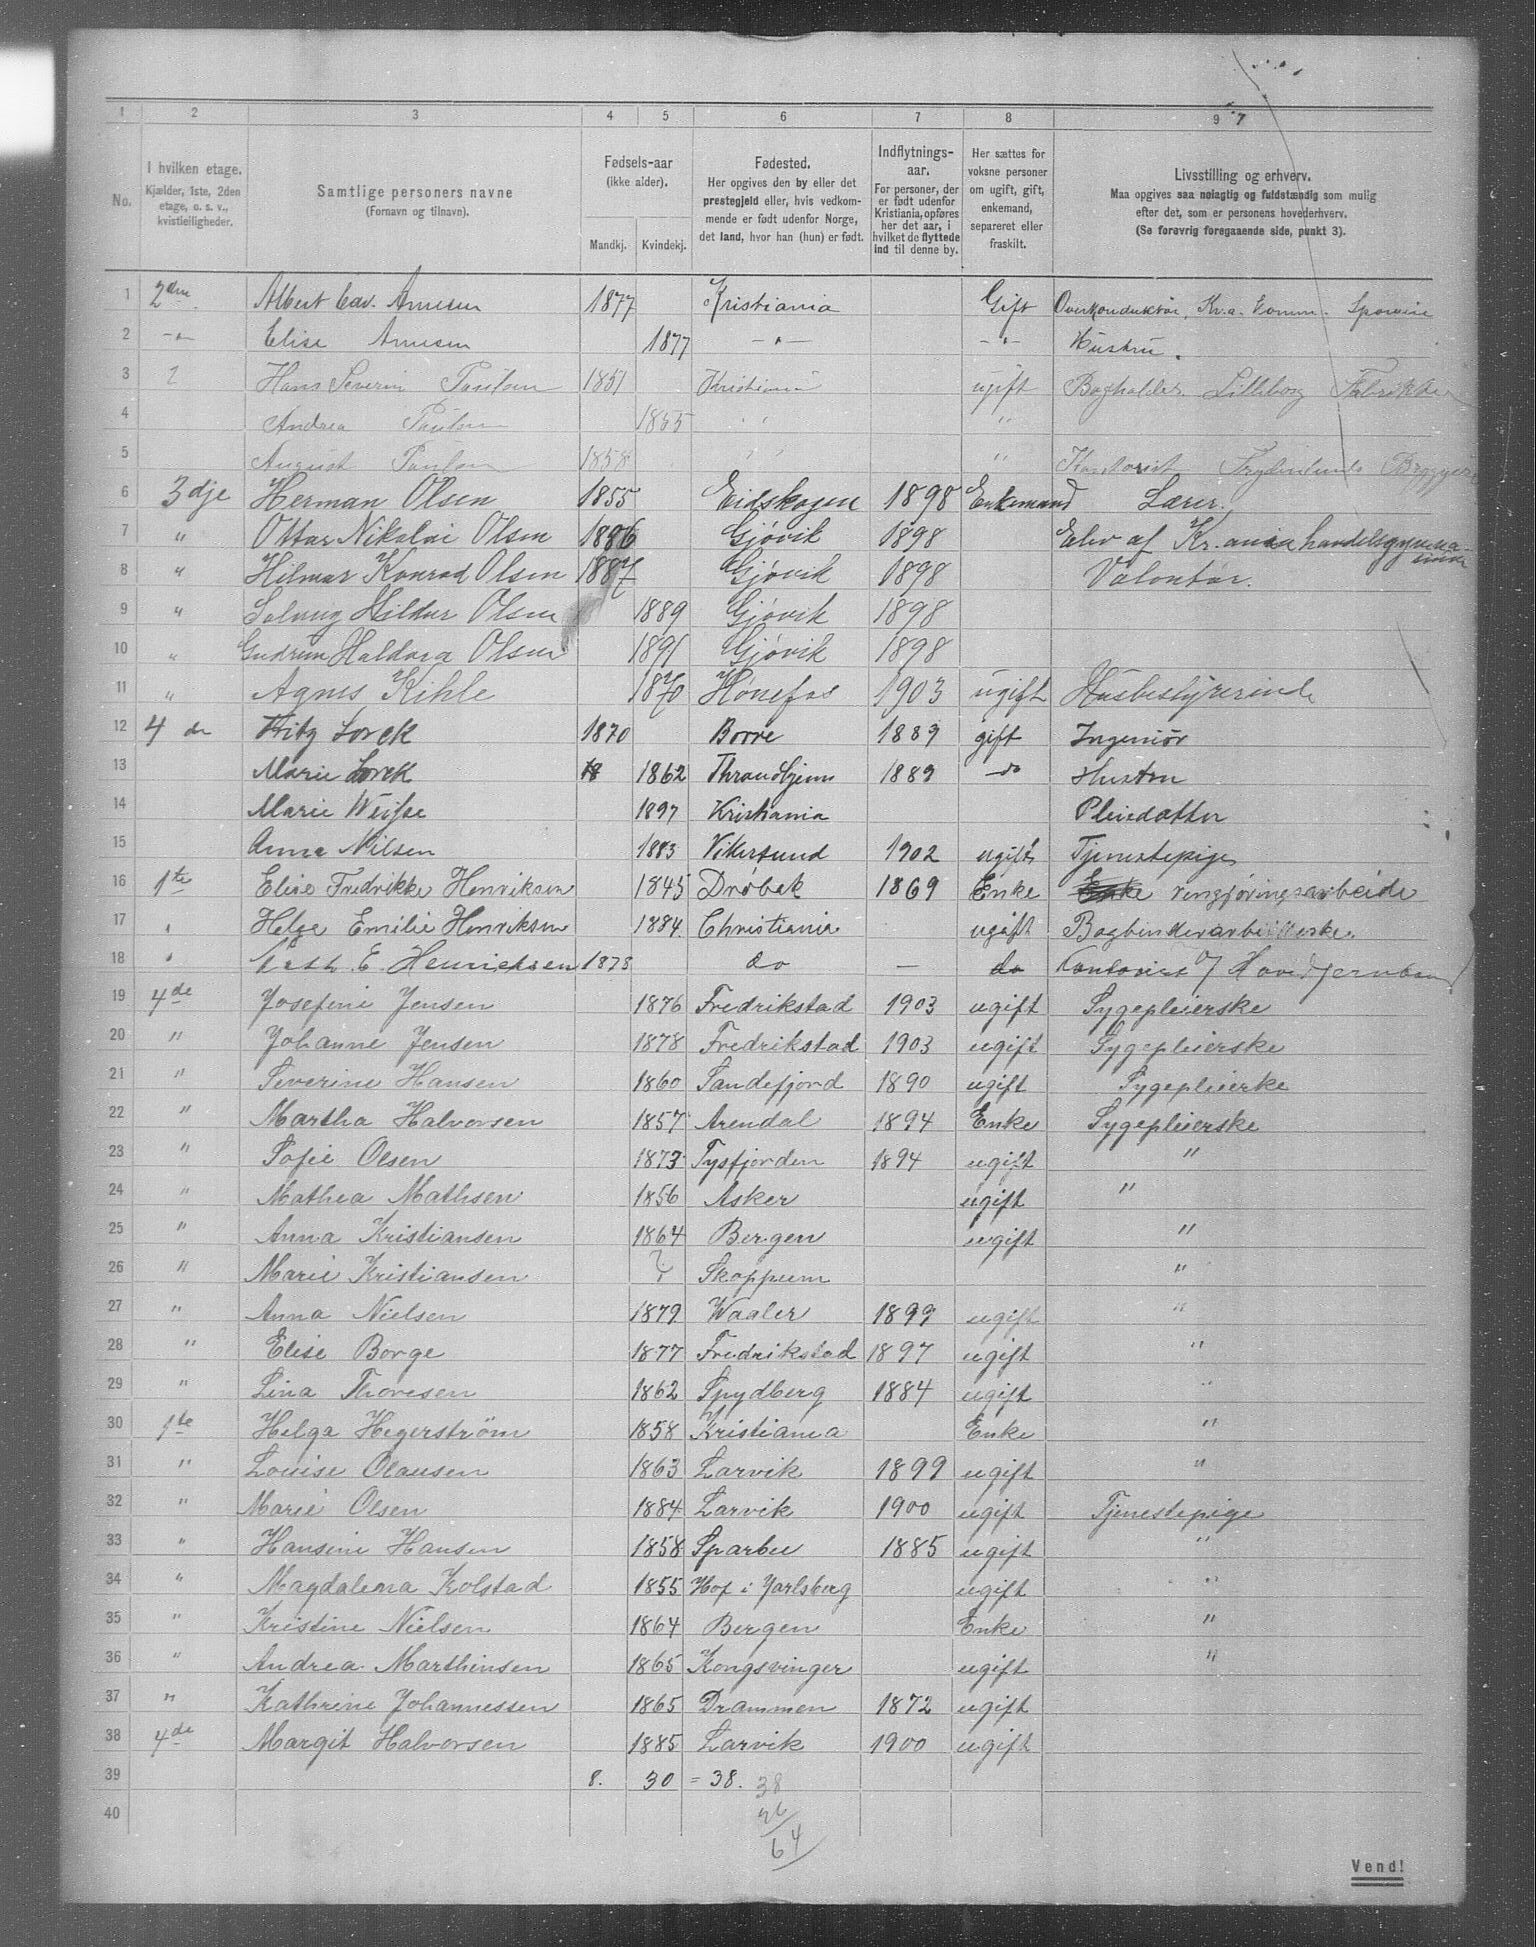 1 2 3 4 5 6 7 8 9 7
No. I hvilken etage. Kjælder, 1ste, 2den etage, o. s. v., kvistleiligheder. Samtlige personers navne (Fornavn og tilnavn). Fødsels-aar (ikke alder). Mandkj. Kvindekj. Fødested. Her opgives den by eller det prestegjeld eller, hvis vedkommende er født udenfor Norge, det land, hvor han (hun) er født. Indflytnings-aar. For personer, der er født udenfor Kristiania, opføres her det aar, i hvilket de flyttede ind til denne by. Her sættes for voksne personer om ugift, gift, enkemand, separeret eller fraskilt. Livsstilling og erhverv. Maa opgives saa nøiagtig og fuldstændig som mulig efter det, som er personens hovederhverv. (Se forøvrig foregaaende side, punkt 3).
1 2den Albert Arnesen 1877 Kristiania Gift Overkonduktør, Kr.a. Komm. Sporveie
2 —"— Elise Arnesen 1877 —"— —"— Hustru.
3 2 Hans Severin Paulsen 1851 Kristiania ugift Bogholder Lilleborg Fabrikker
4 Andrea Paulsen 1855 " " "
5 August Paulsen 1858 " " " Kontorist Frydenlunds Bryggeri
6 3dje Herman Olsen 1855 Eidskogen 1898 Enkemand Lærer.
7 " Ottar Nikolai Olsen 1886 Gjøvik 1898 Elev af Kr.ania handelsgymnasium
8 " Hilmar Konrad Olsen 1887 Gjøvik 1898 Volontør.
9 " Solveig Hildur Olsen 1889 Gjøvik 1898
10 " Gudrun Haldora Olsen 1891 Gjøvik 1898
11 " Agnes Kihle 1870 Hønefos 1903 ugift Husbestyrerinde
12 4 de Fritz Lorck 1870 Borre 1889 gift Ingeniør
13 Marie Lorck 18 1862 Throndhjem 1889 do Hustru
14 Marie Weisse 1897 Kristiania Pleiedatter
15 Anna Nilsen 1883 Vikersund 1902 ugift Tjenestepige
16 1te Elise Fredrikke Henriksen 1845 Drøbak 1869 Enke Enke rengjøringsarbeide
17 " Helga Emilie Henriksen 1884 Christiania ugift Bogbinderarbeiderske.
18 " E. Henricksen 1878 do — do Kontorist v/ Hovedjernbanen
19 4de Josefine Jensen 1876 Fredrikstad 1903 ugift Sygepleierske
20 " Johanne Jensen 1878 Fredrikstad 1903 ugift Sygepleierske
21 " Severine Hansen 1860 Sandefjord 1890 ugift Sygepleierke
22 " Martha Halvorsen 1857 Arendal 1894 Enke Sygepleierske
23 " Sofie Olsen 1873 Tysfjorden 1894 ugift "
24 " Mathea Mathsen 1856 Asker ugift "
25 " Anna Kristiansen 1864 Bergen ugift "
26 " Marie Kristiansen ? Skoppum "
27 " Anna Nielsen 1879 Waaler 1899 ugift "
28 " Elise Borge 1877 Fredrikstad 1897 ugift "
29 " Lina Thoresen 1862 Spydberg 1884 ugift "
30 1te Helga Hegerstrøm 1858 Kristiania Enke "
31 " Louise Olausen 1863 Larvik 1899 ugift "
32 " Marie Olsen 1884 Larvik 1900 ugift Tjenestepige
33 " Hansine Hansen 1858 Sparbu 1885 ugift "
34 " Magdalena Kolstad 1855 Hof i Jarlsberg ugift "
35 " Kristine Nielsen 1864 Bergen Enke "
36 " Andrea Marthinsen 1865 Kongsvinger ugift "
37 " Kathrine Johannessen 1865 Drammen 1872 ugift
38 4de Margit Halvorsen 1885 Larvik 1900 ugift
39 8. 30 = 38. 38
40 26
64
Vend!